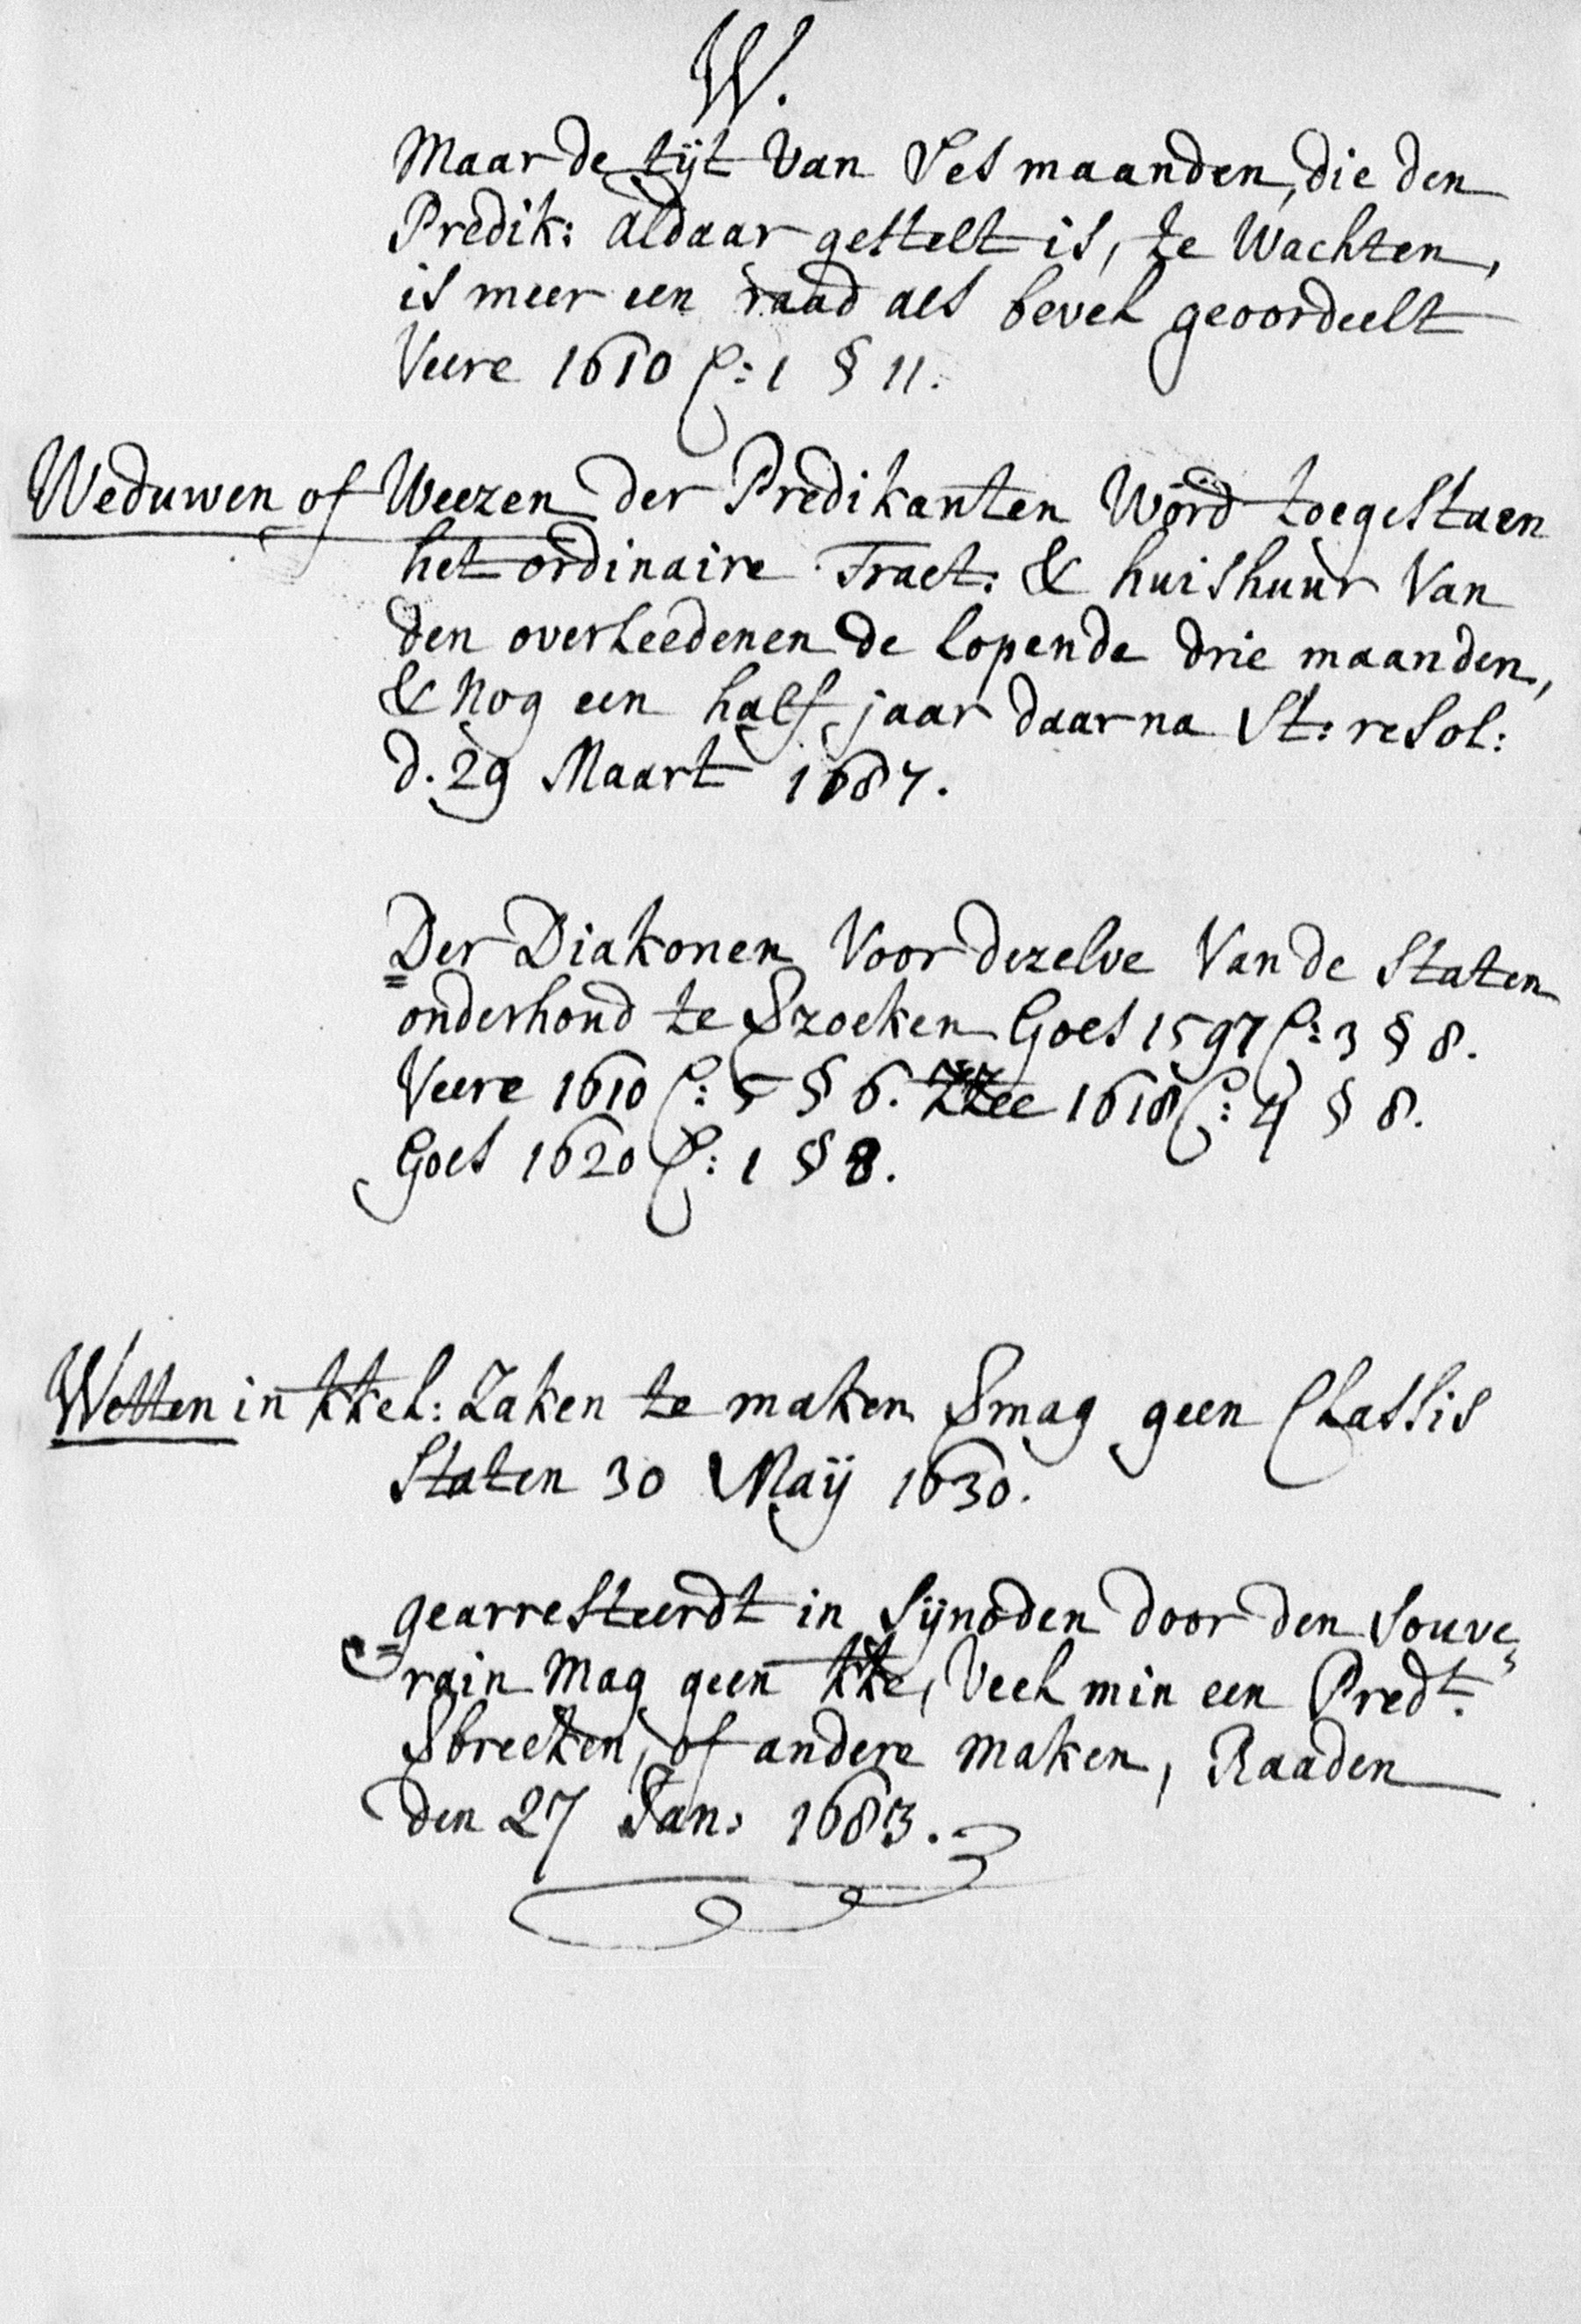 W.
Maar de tijt van ses maanden, die den
Predik: aldaar gestelt is, te wachten,
is meer een raad als bevel geoordeelt
Veere 1610 C: 1 § 11.
Weduwen of Weezen der Predikanten word toegestaen
het ordinaire Tract: & huishuur van
den overleedenen de lopende drie maanden,
& nog een half jaar daarna St: resol:
d. 29 Maart 1687.
Der Diakonen voor dezelve van de Staten
onderhoud te zoeken Goes 1597 C: 3 § 8.
Veere 1610 C: 5 § 6. ZZee 1618 C: 4 § 8.
Goes 1620 C: 1 § 8.
Wetten in kkel: Zaken te maken mag geen Classis
Staten 30 Maij 1630.
gearresteerdt in Sijnoden door den Souve
rain mag geen kke, veel min een Predt.
breeken, of andere maken, Raaden
den 27 Jan: 1683.